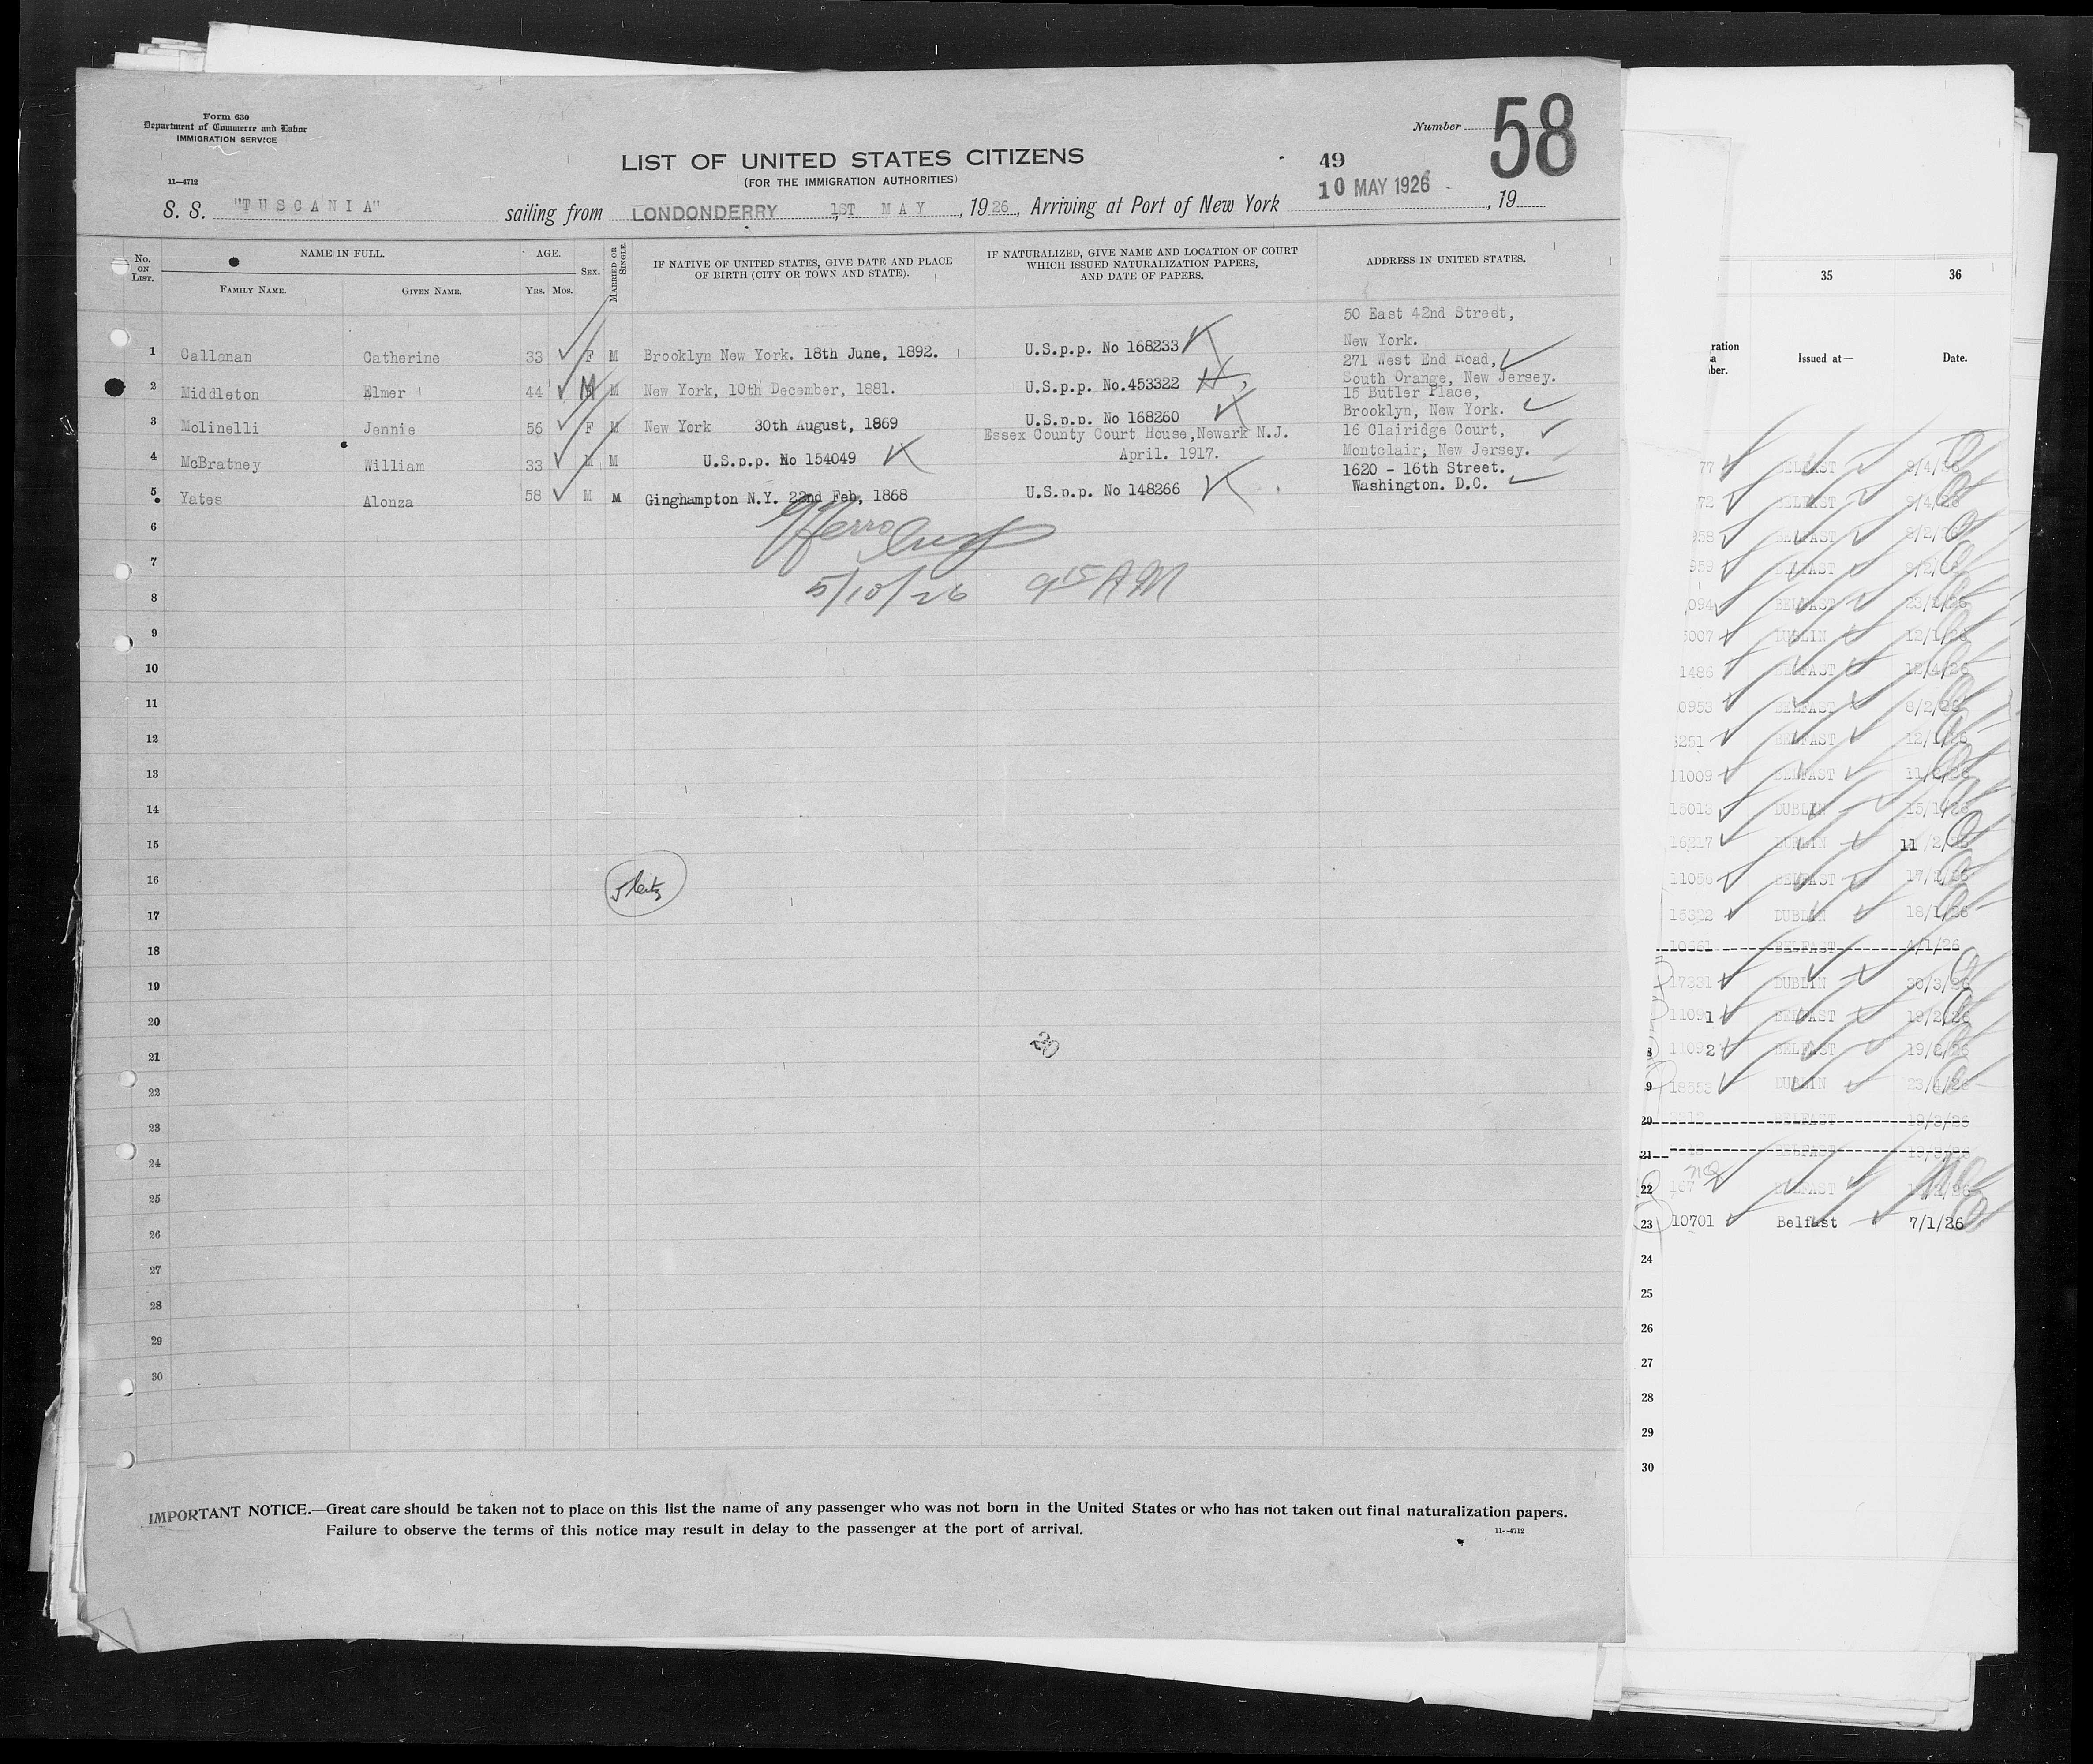 Form 630
Department of Commerce and Labor
IMMIGRATION SERVICE
11—4712
Number
58
LIST OF UNITED STATES CITIZENS
(FOR THE IMMIGRATION AUTHORITIES)
49
10 MAY 1926
S. S. "TUSCANIA" sailing from LONDONDERRY 1ST MAY, 1926, Arriving at Port of New York , 19
No. ON LIST.
NAME IN FULL.
FAMILY NAME.
GIVEN NAME.
AGE.
YRS. MOS.
SEX.
MARRIED OR SINGLE.
IF NATIVE OF UNITED STATES, GIVE DATE AND PLACE
OF BIRTH (CITY OR TOWN AND STATE).
IF NATURALIZED, GIVE NAME AND LOCATION OF COURT
WHICH ISSUED NATURALIZATION PAPERS,
AND DATE OF PAPERS.
ADDRESS IN UNITED STATES.
50 East 42nd Street,
New York.
1 Callanan Catherine 33 F M Brooklyn New York. 18th June, 1892. U.S.p.p. No 168233
271 West End Road,
South Orange, New Jersey.
2 Middleton Elmer 44 M M New York, 10th December, 1881. U.S.p.p. No.453322
15 Butler Place,
Brooklyn, New York.
3 Molinelli Jennie 56 F M New York 30th August, 1869 U.S.p.p. No 168260
Essex County Court House, Newark N.J.
April. 1917.
16 Clairidge Court,
Montclair, New Jersey.
4 McBratney William 33 M M U.S.p.p. No 154049
1620 - 16th Street.
Washington. D.C.
5 Yates Alonza 58 M M Ginghampton N.Y. 22nd Feb, 1868 U.S.p.p. No 148266
6
7
5/10/26 9 15 AM
8
9
10
11
12
13
14
15
16
17
18
19
20
21
22
23
24
25
26
27
28
29
30
IMPORTANT NOTICE.—Great care should be taken not to place on this list the name of any passenger who was not born in the United States or who has not taken out final naturalization papers.
Failure to observe the terms of this notice may result in delay to the passenger at the port of arrival.
11--4712
35
36
Issued at—
Date.
77 BELFAST 9/4/26
72 BELFAST 9/4/26
958 BELFAST 8/2/26
959 BELFAST 8/2/26
094 BELFAST
DUBLIN 12/1/26
1486 BELFAST 12/4/26
0953 BELFAST 8/2/26
BELFAST 12/1/26
11009 BELFAST
15013 DUBLIN 15/1/26
16217 DUBLIN 11/2/26
11056 BELFAST 17/2/26
15322 DUBLIN 18/1/26
BELFAST 4/1/26
17331 DUBLIN 30/3/26
11091 BELFAST 19/2/26
11092 BELFAST 19/2/26
19 18553 DUBLIN 23/4/26
20 BELFAST
21 BELFAST
22 BELFAST
23 10701 Belfast 7/1/26
24
25
26
27
28
29
30